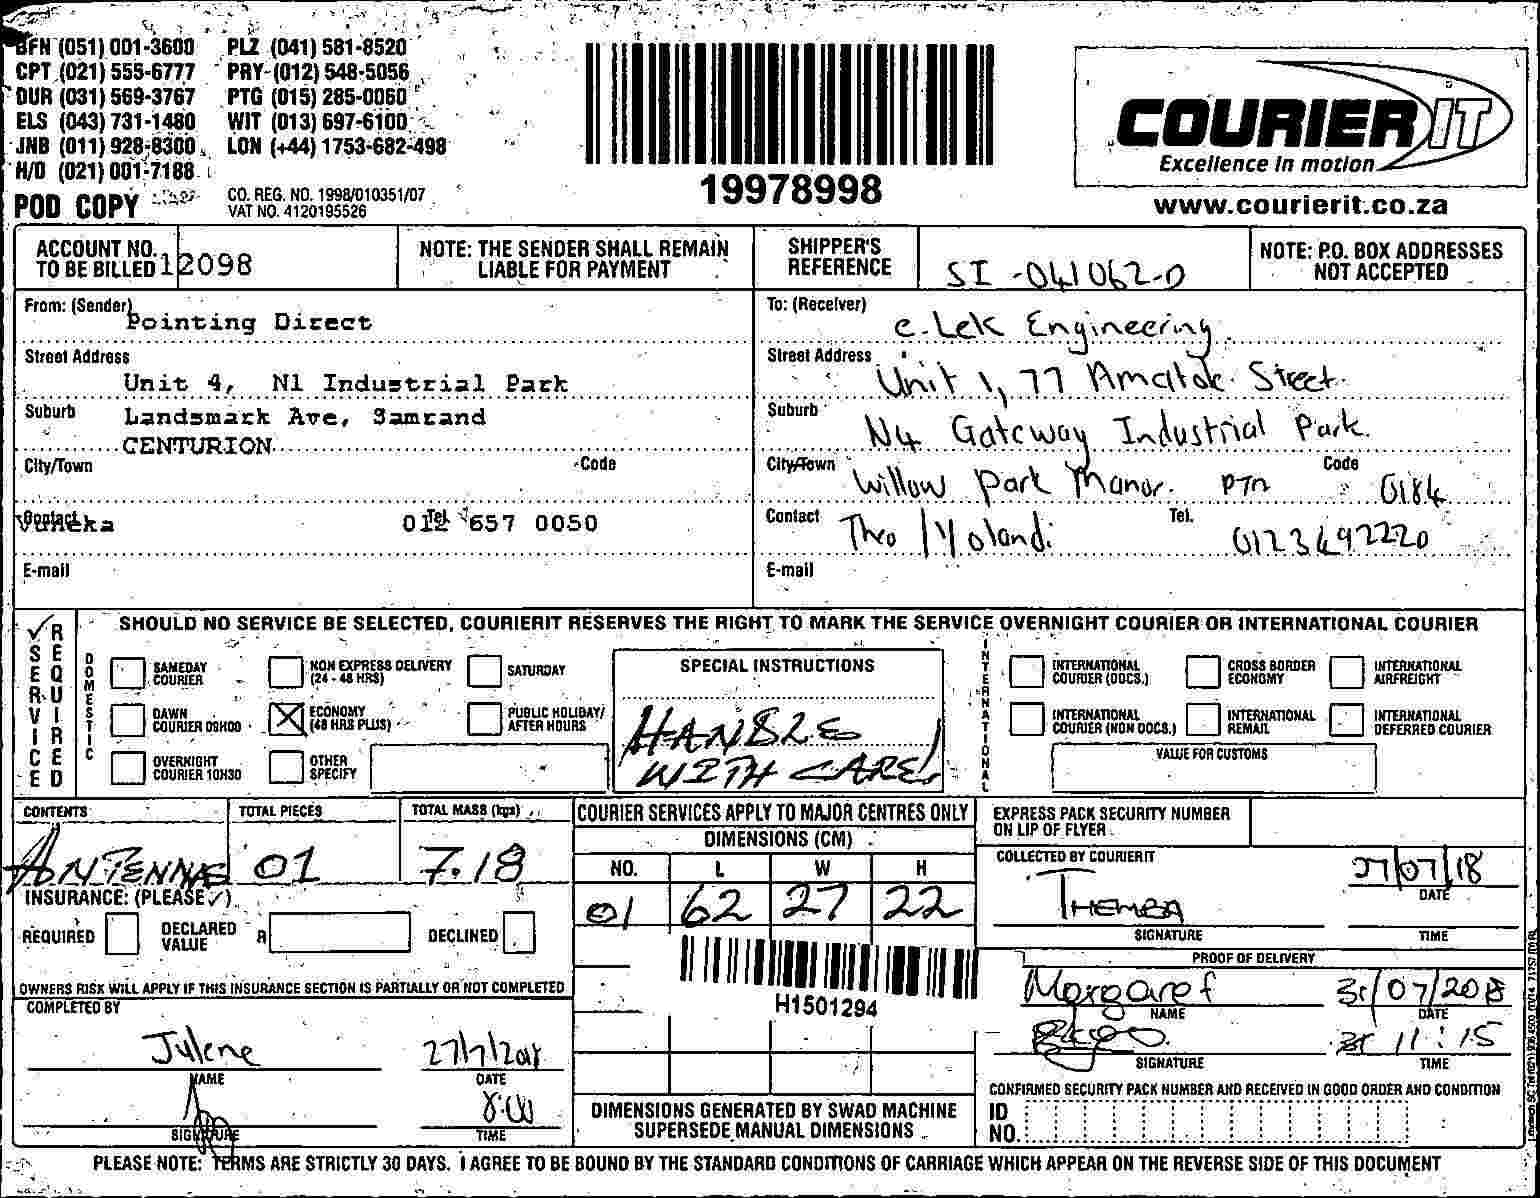 BFN (051) 001-3600 PLZ (041) 581-8520
CPT (021) 555-6777 PRY (012) 548-5056
DUR (031) 569-3767 PTG (015) 285-0060
ELS (043) 731-1480 WIT (013) 697-6100
JNB (011) 928-8300 LON (+44) 1753-682-498
H/O (021) 001-7188
POD COPY
CO. REG. NO. 1998/010351/07
VAT NO. 4120195526
19978998
COURIER IT
Excellence in motion
www.courierit.co.za
ACCOUNT NO. TO BE BILLED 12098
NOTE: THE SENDER SHALL REMAIN LIABLE FOR PAYMENT
SHIPPER'S REFERENCE SI-041062-0
NOTE: P.O. BOX ADDRESSES NOT ACCEPTED
From: (Sender) Pointing Direct
Street Address
Unit 4, N1 Industrial Park
Suburb Landsmark Ave, Samrand
CENTURION
City/Town Code
Contact Vuneka Tel 012 657 0050
E-mail
To: (Receiver) e-Lek Engineering
Street Address Unit 1, 77 Amatok Street
Suburb N4 Gateway Industrial Park.
City/Town Willow Park Manor. PTA Code 0184
Contact Theo / Yolandi Tel. 0123492220
E-mail
SERVICE REQUIRED
SHOULD NO SERVICE BE SELECTED, COURIERIT RESERVES THE RIGHT TO MARK THE SERVICE OVERNIGHT COURIER OR INTERNATIONAL COURIER
DOMESTIC
SAMEDAY COURIER
NON EXPRESS DELIVERY (24 - 48 HRS)
SATURDAY
DAWN COURIER 09H00
ECONOMY (48 HRS PLUS)
PUBLIC HOLIDAY/ AFTER HOURS
OVERNIGHT COURIER 10H30
OTHER SPECIFY
SPECIAL INSTRUCTIONS
HANDLE
WITH CARE!
INTERNATIONAL
INTERNATIONAL COURIER (DOCS.)
CROSS BORDER ECONOMY
INTERNATIONAL AIRFREIGHT
INTERNATIONAL COURIER (NON DOCS.)
INTERNATIONAL REMAIL
INTERNATIONAL DEFERRED COURIER
VALUE FOR CUSTOMS
CONTENTS TOTAL PIECES TOTAL MASS (kgs)
ANTENNE 01 7.18
INSURANCE: (PLEASE ✓)
REQUIRED DECLARED VALUE R DECLINED
OWNERS RISK WILL APPLY IF THIS INSURANCE SECTION IS PARTIALLY OR NOT COMPLETED
COMPLETED BY
Julene 27/7/2018
NAME DATE
8:00
SIGNATURE TIME
COURIER SERVICES APPLY TO MAJOR CENTRES ONLY
DIMENSIONS (CM)
NO. L W H
01 62 27 22
H1501294
DIMENSIONS GENERATED BY SWAD MACHINE
SUPERSEDE MANUAL DIMENSIONS
EXPRESS PACK SECURITY NUMBER ON LIP OF FLYER
COLLECTED BY COURIERIT
27/07/18
DATE
THEMBA
SIGNATURE TIME
PROOF OF DELIVERY
Margaret 31/07/2018
NAME DATE
11:15
SIGNATURE TIME
CONFIRMED SECURITY PACK NUMBER AND RECEIVED IN GOOD ORDER AND CONDITION
ID NO.
PLEASE NOTE: TERMS ARE STRICTLY 30 DAYS. I AGREE TO BE BOUND BY THE STANDARD CONDITIONS OF CARRIAGE WHICH APPEAR ON THE REVERSE SIDE OF THIS DOCUMENT